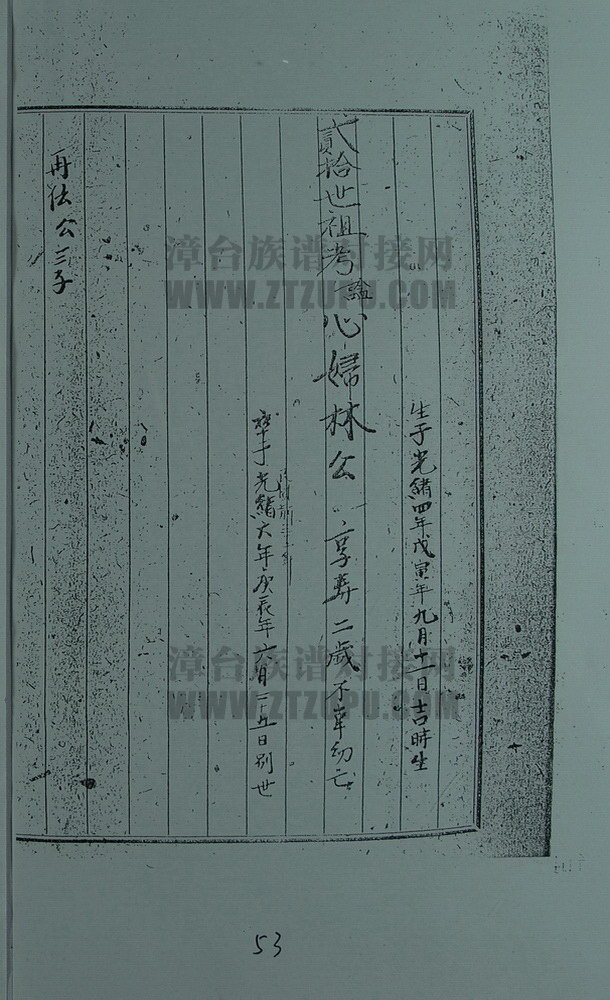 生于光緒四年戊寅年九月十一日吉時生
貳拾世祖考諡心婦林公 享壽二歲不幸幼亡
卒于光緒六年庚辰年六月二十五日別世
再法公三子
53
漳台族谱对接网
WWW.ZTZUPU.COM
漳台族谱对接网
WWW.ZTZUPU.COM